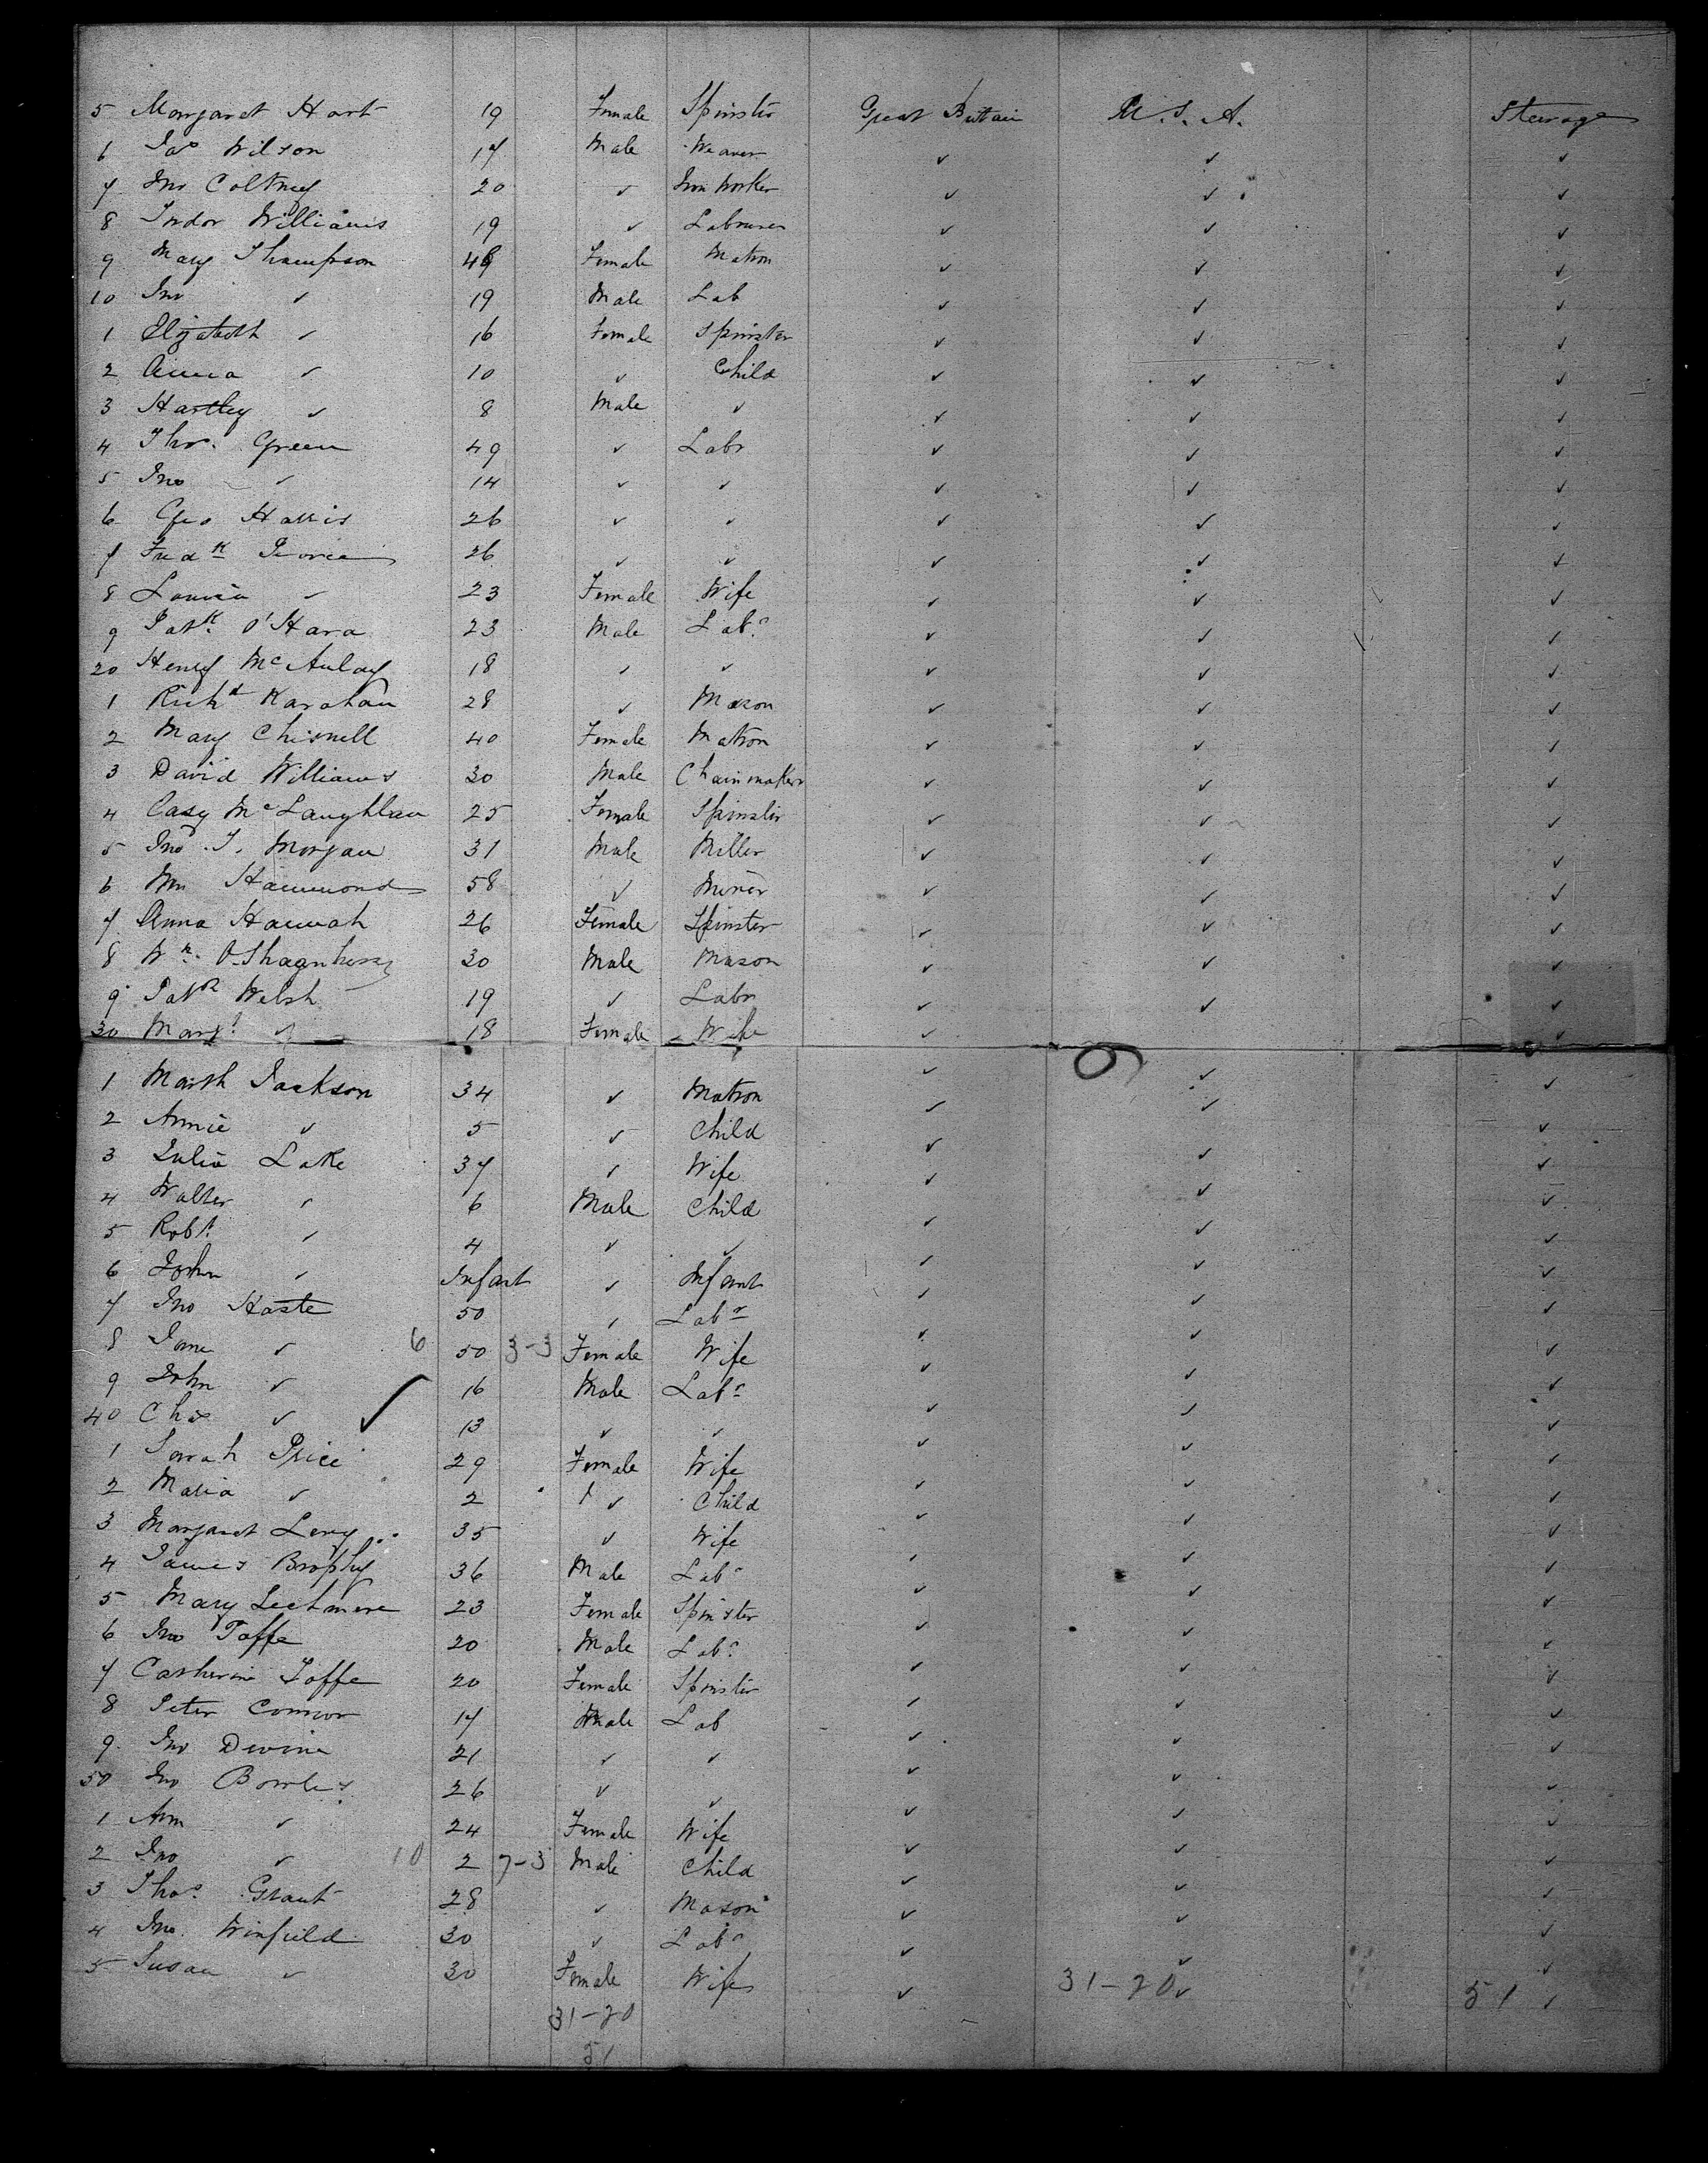 5 Margaret Hart 19 Female Spinster Great Britain U.S.A. Steerage
6 Jas Wilson 17 Male Weaver ✓ ✓ ✓
7 Jno Coltney 20 ✓ Iron Worker ✓ ✓ ✓
8 Williams 19 ✓ Labourer ✓ ✓ ✓
9 Mary Thompson Female Matron ✓ ✓ ✓
10 Jno ✓ 19 Male Lab ✓ ✓ ✓
1 Elizabeth ✓ 16 Female Spinster ✓ ✓ ✓
2 Anna ✓ 10 ✓ Child ✓ ✓ ✓
3 Hartley ✓ 8 Male ✓ ✓ ✓ ✓
4 Thos. Green 49 ✓ Labr ✓ ✓ ✓
5 Jno ✓ 14 ✓ ✓ ✓ ✓ ✓
6 Geo Harris 26 ✓ ✓ ✓ ✓ ✓
7 Fredk 26 ✓ ✓ ✓ ✓ ✓
8 Louisa ✓ 23 Female Wife ✓ ✓ ✓
9 Patk. O'Hara 23 Male Labr ✓ ✓ ✓
20 Henry McAulay 18 ✓ ✓ ✓ ✓ ✓
1 Richd 28 ✓ Mason ✓ ✓ ✓
2 Mary Chisnell 40 Female Matron ✓ ✓ ✓
3 David Williams 30 Male Chainmaker ✓ ✓ ✓
4 McLaughlan 25 Female Spinster ✓ ✓ ✓
5 Jno J. Morgan 31 Male Miller ✓ ✓ ✓
6 Wm Hammond 58 ✓ Miner ✓ ✓ ✓
7 Anna Hannah 26 Female Spinster ✓ ✓ ✓
8 Wm. O'Shaughnessy 30 Male Mason ✓ ✓ ✓
9 Patk Welsh 19 ✓ Labr ✓ ✓ ✓
30 Margt ✓ 18 Female Wife ✓ ✓
1 Jackson 34 ✓ Matron ✓ ✓ ✓
2 Annie ✓ 5 ✓ Child ✓ ✓ ✓
3 Julia Lake 37 ✓ Wife ✓ ✓ ✓
4 Walter ✓ 6 Male Child ✓ ✓ ✓
5 Robt. ✓ 4 ✓ ✓ ✓ ✓ ✓
6 John ✓ Infant ✓ Infant ✓ ✓ ✓
7 Jno Haste 50 ✓ Labr ✓ ✓ ✓
8 Jane ✓ 6 50 3-3 Female Wife ✓ ✓ ✓
9 John ✓ 16 Male Labr ✓ ✓ ✓
40 Chas ✓ ✓ 13 ✓ ✓ ✓ ✓ ✓
1 Sarah Price 29 Female Wife ✓ ✓ ✓
2 Maria ✓ 2 ✓ Child ✓ ✓ ✓
3 Margaret 35 ✓ Wife ✓ ✓ ✓
4 James Brophy 36 Male Labr ✓ ✓ ✓
5 Mary Lechmere 23 Female Spinster ✓ ✓ ✓
6 Jno Taffe 20 Male Labr ✓ ✓ ✓
7 Catherine Taffe 20 Female Spinster ✓ ✓ ✓
8 Peter Connor 17 Male Lab ✓ ✓ ✓
9 Jno Devine 21 ✓ ✓ ✓ ✓ ✓
50 Jno Bowles 26 ✓ ✓ ✓ ✓ ✓
1 Ann ✓ 24 Female Wife ✓ ✓ ✓
2 Jno ✓ 10 2 7-3 Male Child ✓ ✓ ✓
3 Thos. Grant 28 ✓ Mason ✓ ✓ ✓
4 Jno. Winfield 30 ✓ Labr ✓ ✓ ✓
5 Susan ✓ 30 Female Wife ✓ 31-20 ✓ 51 ✓
31-20
51